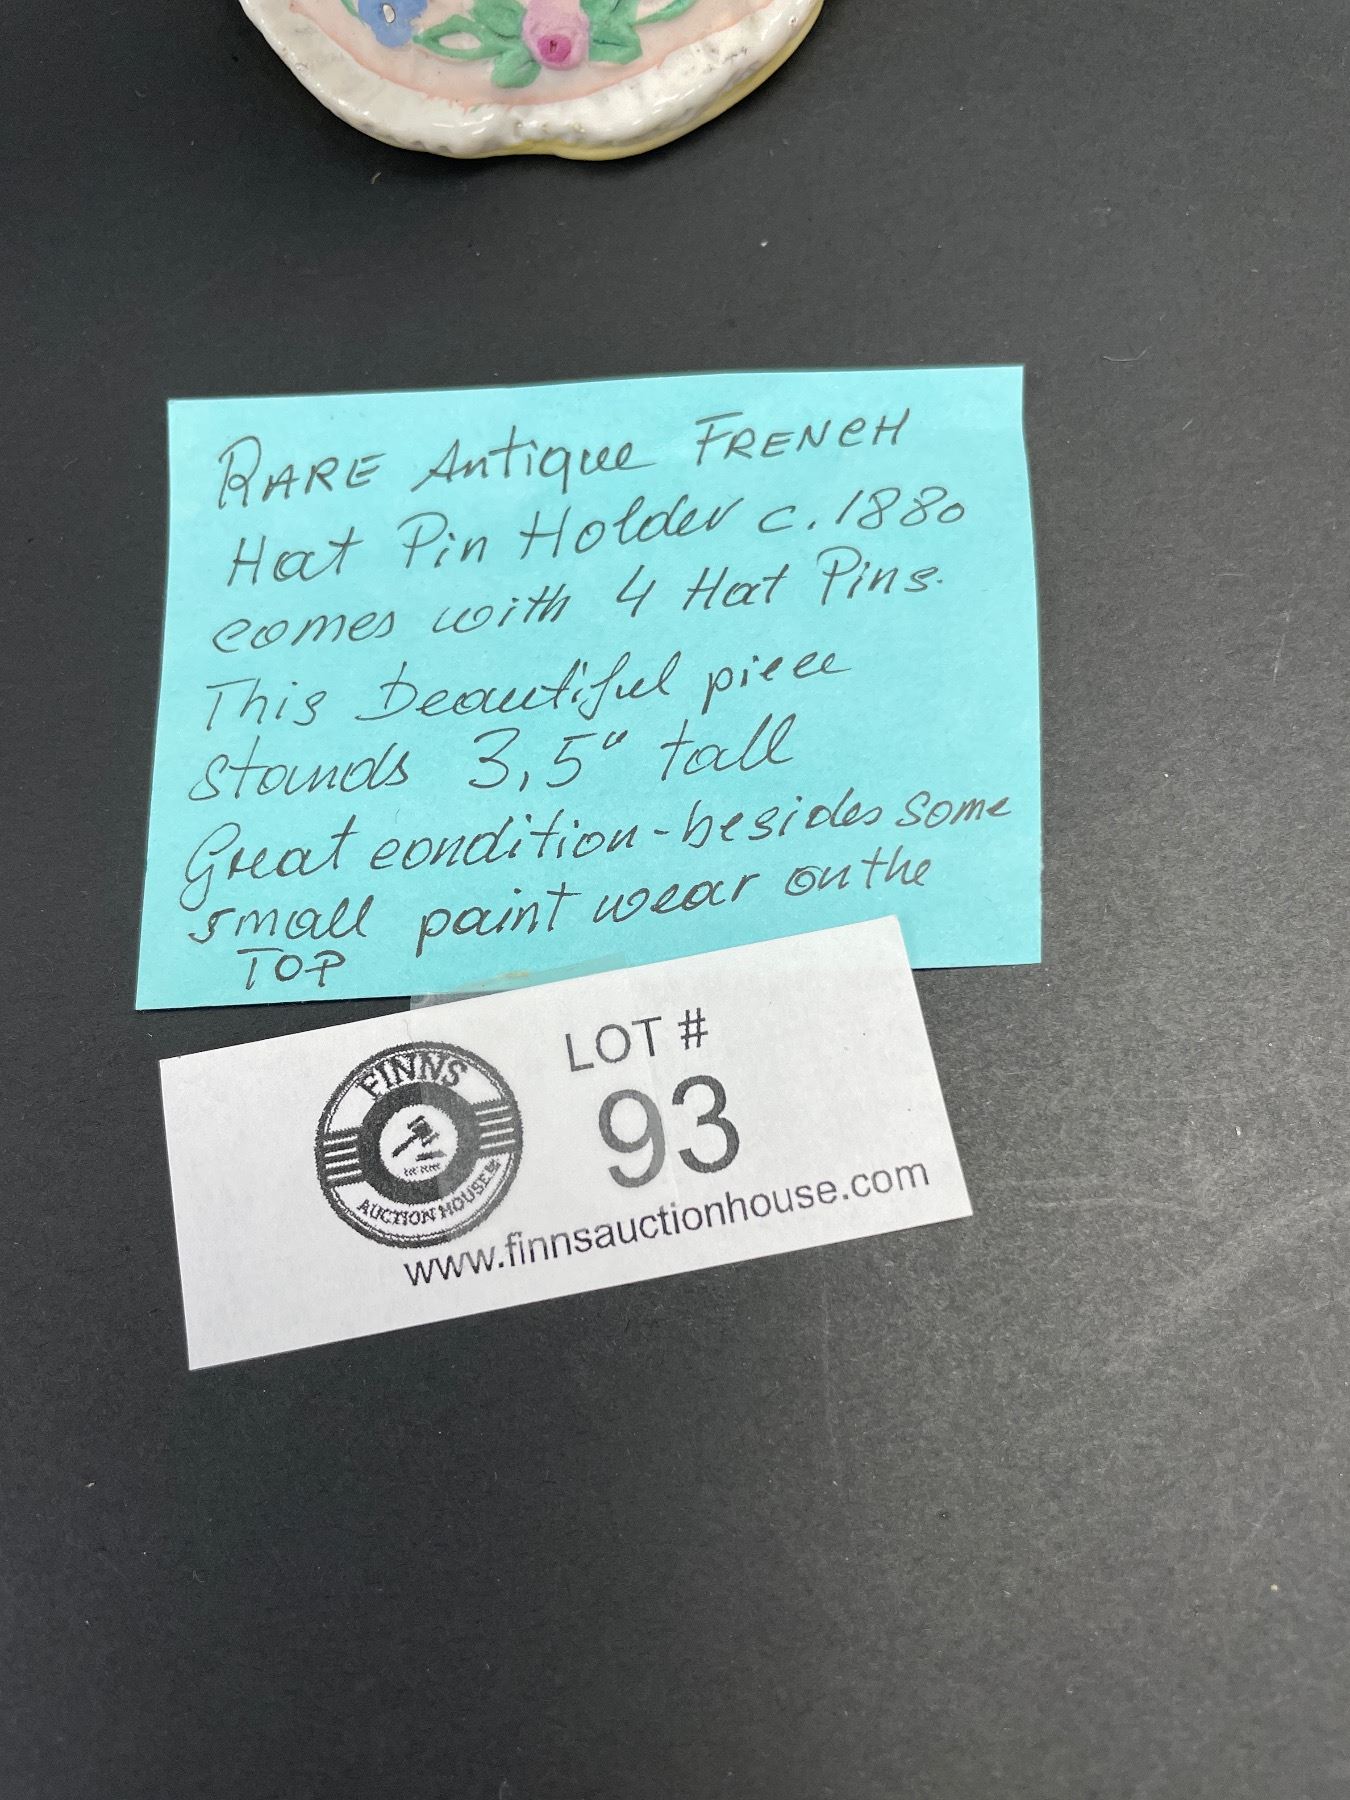 RARE Antique FRENCH
Hat Pin Holder c. 1880
comes with 4 Hat Pins.
This beautiful piece
stands 3,5" tall
Great condition - besides some
small paint wear on the
TOP
LOT #
93
FINNS
AUCTION HOUSE
www.finnsauctionhouse.com